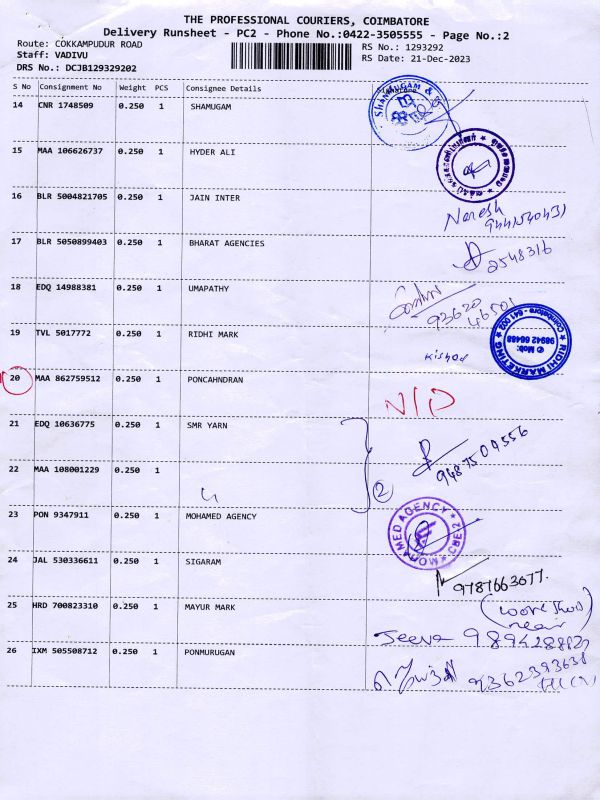 THE PROFESSIONAL COURIERS, COIMBATORE
Delivery Runsheet - PC2 - Phone No.:0422-3505555 - Page No.:2
Route: COKKAMPUDUR ROAD
RS No.: 1293292
Staff: VADIVU
RS Date: 21-Dec-2023
DRS No.: DCJB129329202
S No Consignment No Weight PCS Consignee Details
14 CNR 1748509 0.250 1 SHAMUGAM
15 MAA 106626737 0.250 1 HYDER ALI
16 BLR 5004821705 0.250 1 JAIN INTER
Naresh
17 BLR 5050899403 0.250 1 BHARAT AGENCIES
2548316
18 EDQ 14988381 0.250 1 UMAPATHY
93620
46501
19 TVL 5017772 0.250 1 RIDHI MARK
Kishor
RIDHI MARKETING
Coimbatore - 641 002
Mob:
98942 66488
20 MAA 862759512 0.250 1 PONCAHNDRAN
N/D
21 EDQ 10636775 0.250 1 SMR YARN
9487509556
22 MAA 108001229 0.250 1
2
23 PON 9347911 0.250 1 MOHAMED AGENCY
MOHAMED AGENCY
CBE-2
24 JAL 530336611 0.250 1 SIGARAM
9787663677.
25 HRD 700823310 0.250 1 MAYUR MARK
Jeeva
26 IXM 505508712 0.250 1 PONMURUGAN
9362393638